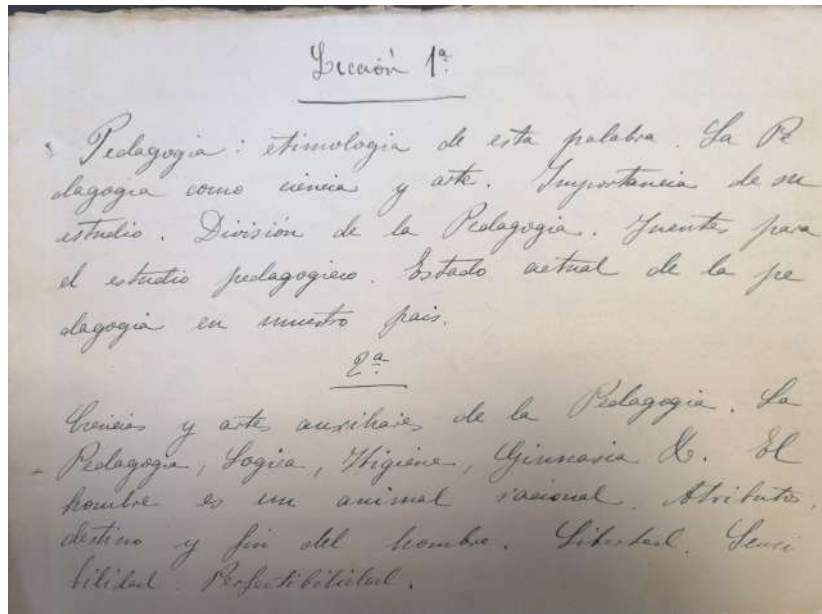 Lección 1ª
Pedagogia: etimologia de esta palabra. La Pe
dagogia como ciencia y arte. Importancia de su
estudio. División de la Pedagogia. Fuentes para
el estudio pedagogico. Estado actual de la pe
dagogia en nuestro pais.
2ª
Ciencias y artes auxiliares de la Pedagogia. La
Pedagogia, Logica, Higiene, Gimnasia &. El
hombre es un animal racional. Atributos,
destino y fin del hombre. Libertad. Sensi
bilidad. Perfectibilidad.